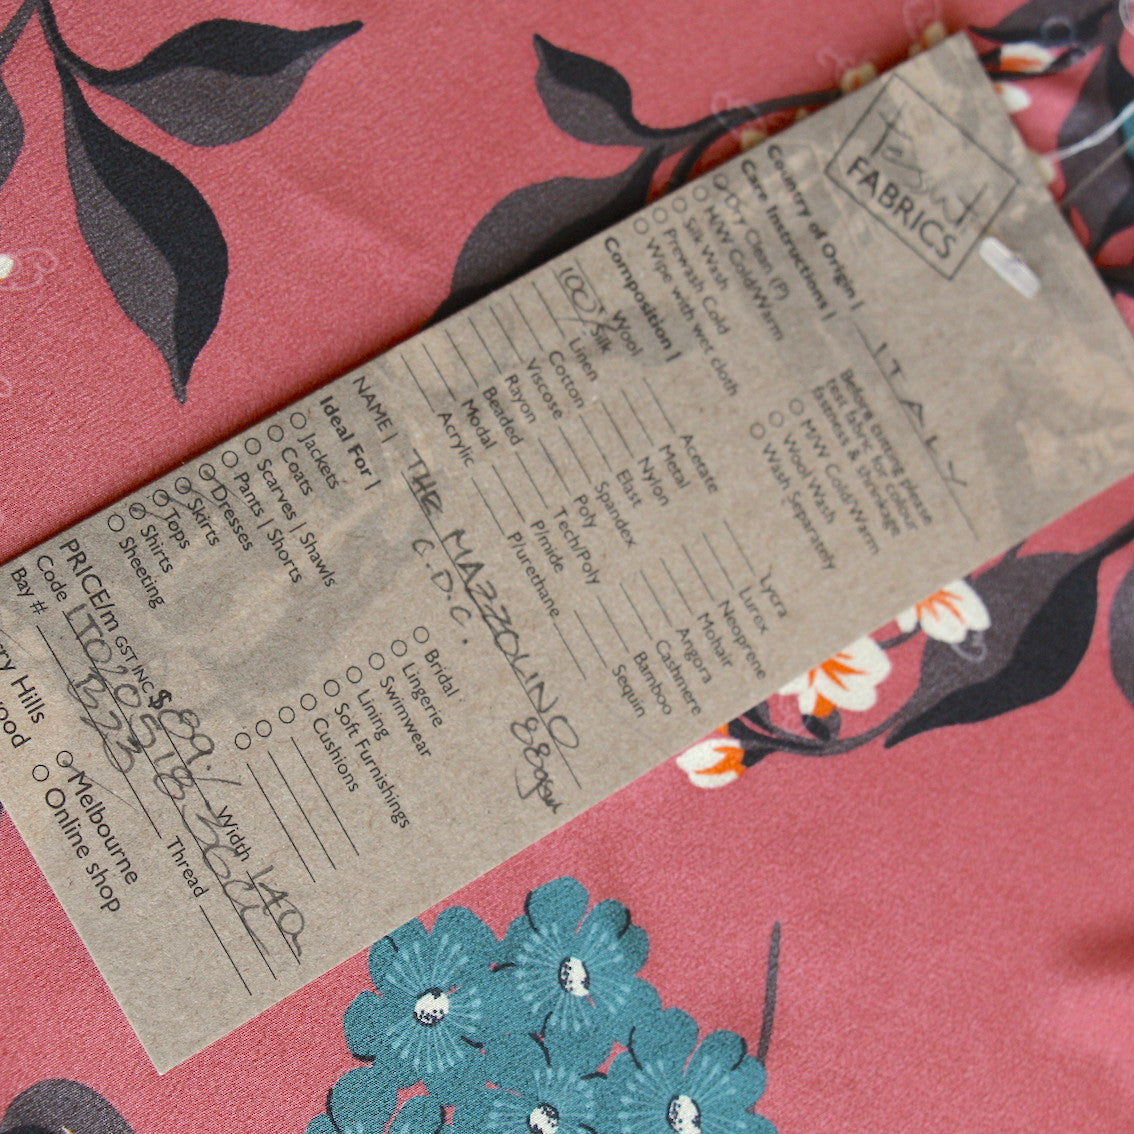 Tessuti
FABRICS
Country of Origin | ITALY
Care Instructions |
Dry Clean (P)
H/W Cold/Warm
Silk Wash
Prewash Cold
Wipe with wet cloth
Before cutting please
test fabric for colour
fastness & shrinkage
M/W Cold/Warm
Wool Wash
Wash Separately
Composition |
Wool
100% Silk
Linen
Cotton
Viscose
Rayon
Beaded
Modal
Acrylic
Acetate
Metal
Nylon
Elast
Spandex
Poly
Tech/Poly
P/mide
P/urethane
Lycra
Lurex
Neoprene
Mohair
Angora
Cashmere
Bamboo
Sequin
NAME | THE MAZZOLINO
C.D.C. 88gsm
Ideal For |
Jackets
Coats
Scarves | Shawls
Pants | Shorts
Dresses
Skirts
Tops
Shirts
Sheeting
Bridal
Lingerie
Swimwear
Lining
Soft Furnishings
Cushions
PRICE/m GST INC $ 89./ Width 140
Code
Bay # B23 Thread
ry Hills
ood
Melbourne
Online shop